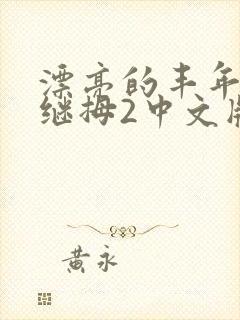 漂亮的丰年
继拇2中文版
黄永